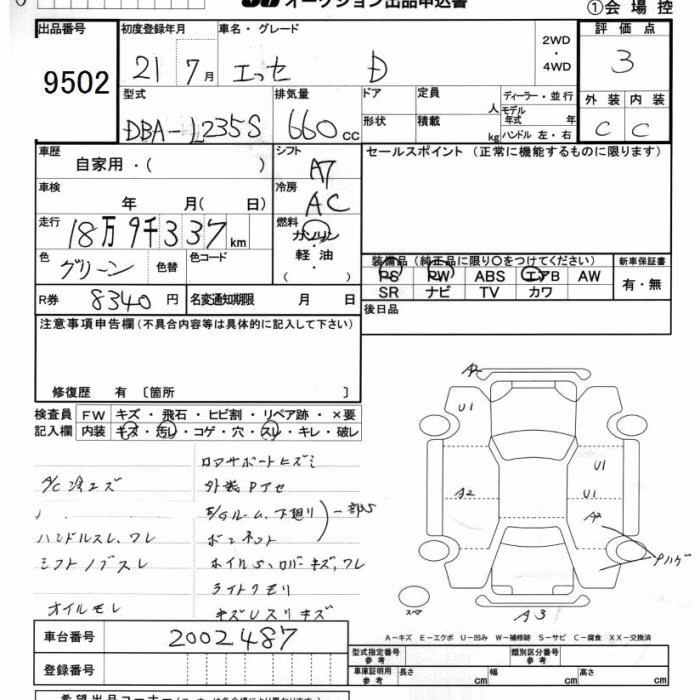 オークション出品申込書
①会場控
出品番号 初度登録年月 車名・グレード 評価点
9502 21 7月 エッセ D 2WD・4WD 3
型式 排気量 ドア 定員 人 ディーラー・並行
DBA-L235S 660cc モデル年式 年 外装 内装
形状 積載 kg ハンドル 左・右 C C
車歴 自家用・( ) シフト AT セールスポイント (正常に機能するものに限ります)
車検 年 月( 日) 冷房 AC
走行 18万9千337km 燃料 ガソリン・軽油・( )
色 グリーン 色替 色コード
装備品 (純正品に限り〇をつけてください) 新車保証書
PS PW ABS エアB AW 有・無
SR ナビ TV カワ
R券 8340円 名変通知期限 月 日 後日品
注意事項申告欄 (不具合内容等は具体的に記入して下さい)
修復歴 有 〔箇所 〕
検査員記入欄 FW キズ・飛石・ヒビ割・リペア跡・×要
内装 キズ・汚レ・コゲ・穴・スレ・キレ・破レ
コアサポートヒズミ
A/C冷エズ
外装Pアセ
下廻リ 一部S
ハンドルスレ、ワレ
ボンネット
シフトノブスレ
ホイルS、カバーキズ、ワレ
ライトクモリ
オイルモレ
キズUスリキズ
A2
U1
U1
A2
U1
A2
Pハゲ
スペア
A3
A-キズ E-エクボ U-凹み W-補修跡 S-サビ C-腐食 XX-交換済
車台番号 2002487
型式指定番号 参考 類別区分番号 参考
登録番号
車庫証明用 参考 長さ cm 幅 cm 高さ cm
希望出品コーナー